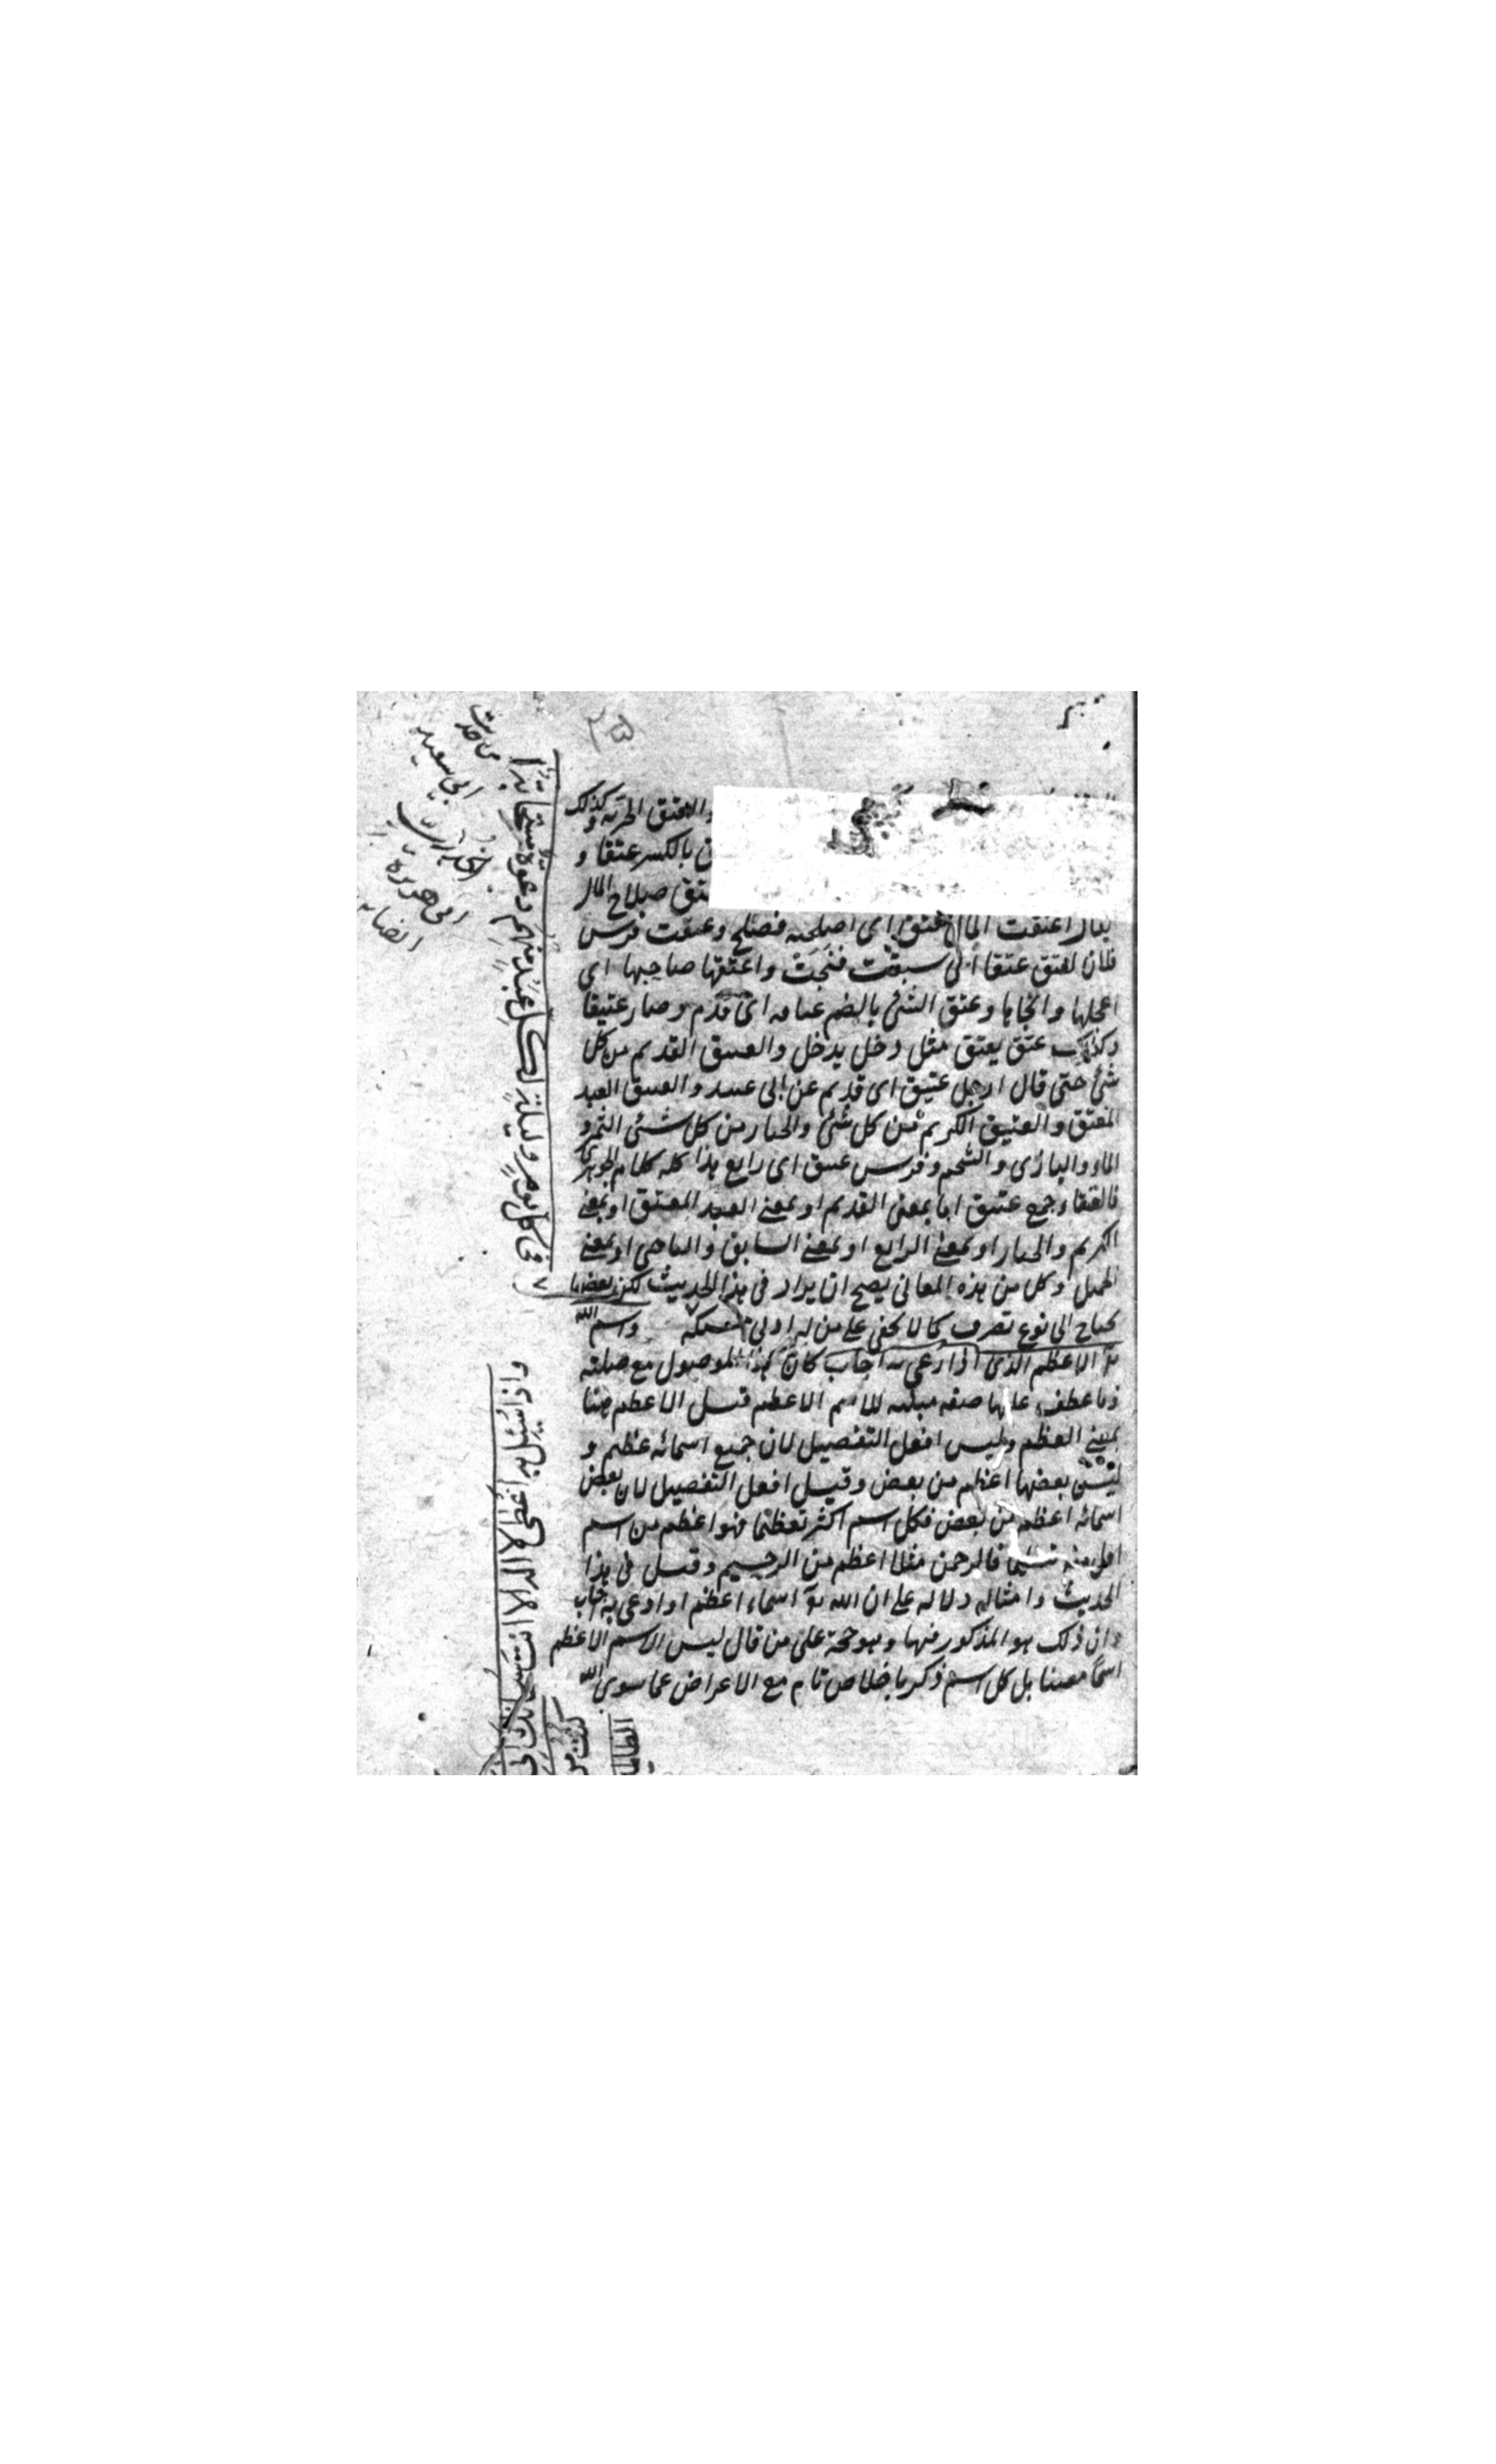 ٢٥
والعتق الحرية وكذلك
بالكسر عتقا و
عتق صلاح المال
يقال اعتقت المال فعتق اى اصلحته فصلح وعتقت فرس
فلان تعتق عتقا اى سبقت فنجت واعتقها صاحبها اى
اعجلها وانجاها وعتق الشئ بالضم عتاقه اى قدم وصار عتيقا
وكذلك عتق يعتق مثل دخل يدخل والعتيق القديم من كل
شئ حتى قال رجل عتيق اى قديم عن ابى عبيد والعتيق العبد
المعتق والعتيق الكريم من كل شئ والخيار من كل شئ التمر و
الماء والبازى والشحم وفرس عتيق اى رايع هذا كله كلام الجوهرى
فالعتقاء جمع عتيق اما بمعنى القديم او بمعنى العبد المعتق او بمعنى
الكريم والخيار او بمعنى الرايع او بمعنى السابق والناجى او بمعنى
الجميل وكل من هذه المعانى يصح ان يراد فى هذا الحديث لكن بعضها
يحتاج الى نوع تصرف كما لا يخفى على من له ادنى مسكة واسم الله
تع الاعظم الذى اذا دعى به اجاب كان هذا الموصول مع صلته
وما عطف عليها صفة مبينة للاسم الاعظم قيل الاعظم هنا
بمعنى العظيم وليس افعل التفضيل لان جميع اسمائه عظيم و
ليس بعضها اعظم من بعض وقيل افعل التفضيل لان بعض
اسمائه اعظم من بعض فكل اسم اكثر تعظيما فهو اعظم من اسم
اقل منه تعظيما فالرحمن مثلا اعظم من الرحيم وقيل فى هذا
الحديث وامثاله دلالة على ان الله تع اسماء اعظم اذا دعى به اجاب
وان ذلك هو المذكور فيها وهو حجة على من قال ليس الاسم الاعظم
اسما معينا بل كل اسم ذكر باخلاص تام مع الاعراض عما سوى الله
فى كل يوم وليلة لكل عبد منهم دعوة مستجابة
من حديث
ابى سعيد
الخدرى
ابى هريرة
ايضا
واذا سئل به اعطى لا اله الا انت سبحانك انى
كنت من
الظالمين